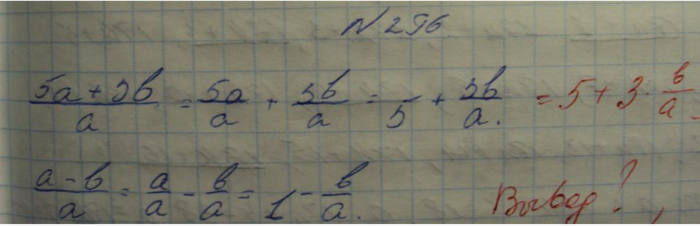 N296
(5a+3b)/a = 5a/a + 3b/a = 5 + 3b/a. = 5 + 3 · b/a
(a-b)/a = a/a - b/a = 1 - b/a.
Вывод?